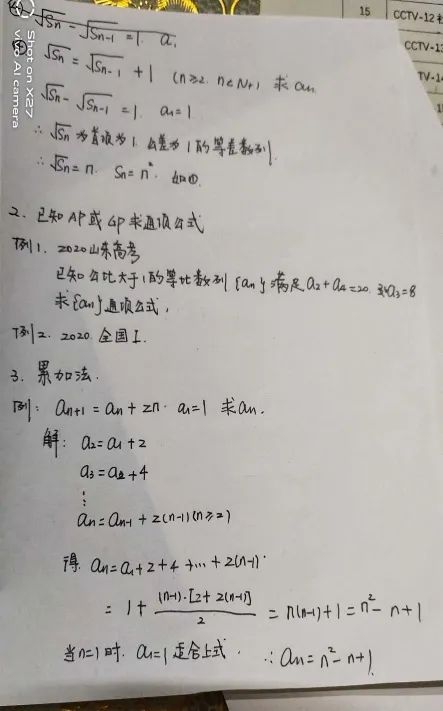 15 CCTV-12
CCTV-13
TV-14
Shot on X27
vivo AI camera
√Sn - √Sn-1 = 1. a1
√Sn = √Sn-1 + 1 (n≥2. n∈N+) 求an
√Sn - √Sn-1 = 1. a1 = 1
∴ √Sn为首项为1. 公差为1的等差数列
∴ √Sn = n. Sn = n². 如①.
2. 已知AP或GP求通项公式
例1. 2020山东高考
已知公比大于1的等比数列{an}满足a2+a4=20. a3=8
求{an}通项公式.
例2. 2020. 全国I.
3. 累加法.
例: an+1 = an + 2n. a1=1 求an.
解: a2 = a1 + 2
a3 = a2 + 4
⋮
an = an-1 + 2(n-1)(n≥2)
得 an = a1 + 2 + 4 + … + 2(n-1).
= 1 + (n-1)·[2+2(n-1)]/2 = n(n-1)+1 = n² - n + 1
当n=1时. a1=1适合上式. ∴ an = n² - n + 1.